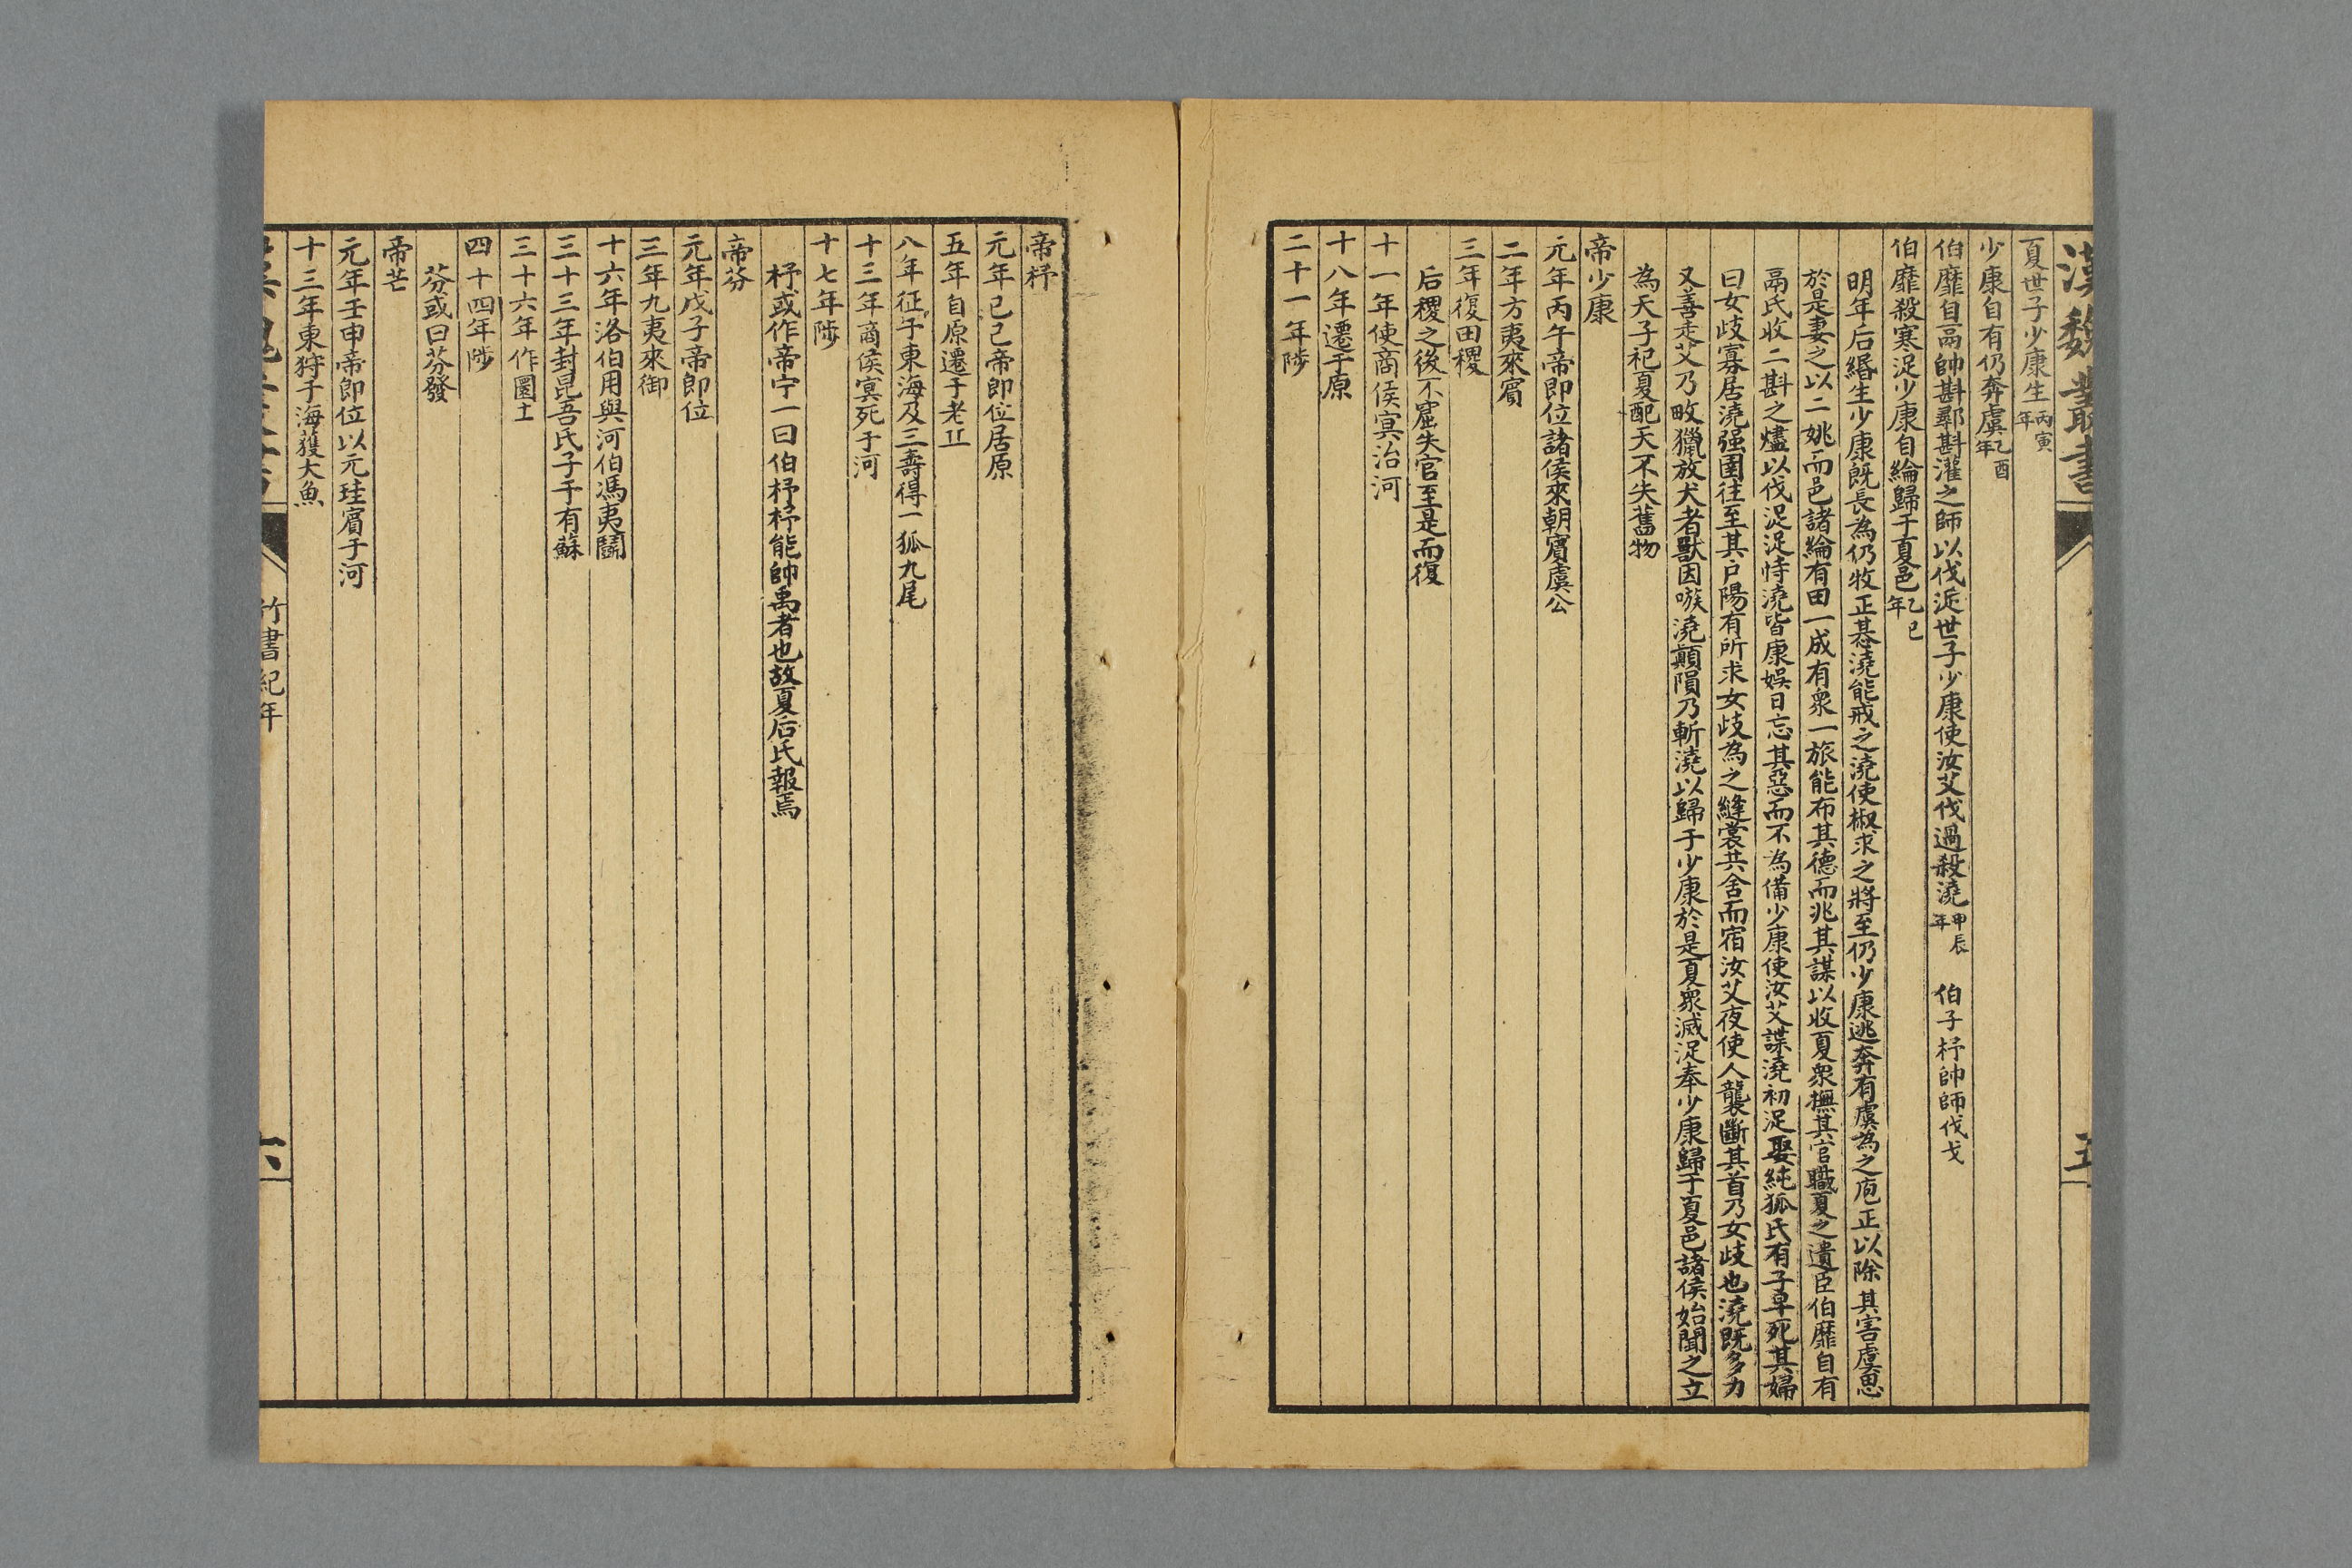 漢魏叢書
五
夏世子少康生丙寅年
少康自有仍奔虞乙酉年
伯靡自鬲帥斟鄩斟灌之師以伐浞世子少康使汝艾伐過殺澆甲辰年 伯子杼帥師伐戈
伯靡殺寒浞少康自綸歸于夏邑乙巳年
明年后緡生少康既長為仍牧正惎澆能戒之澆使椒求之將至仍少康逃奔有虞為之庖正以除其害虞思
於是妻之以二姚而邑諸綸有田一成有衆一旅能布其德而兆其謀以收夏衆撫其官職夏之遺臣伯靡自有
鬲氏收二斟之燼以伐浞浞恃澆皆康娛日忘其惡而不為備少康使汝艾諜澆初浞娶純狐氏有子早死其婦
曰女歧寡居澆强圉往至其戶陽有所求女歧為之縫裳共舍而宿汝艾夜使人襲斷其首乃女歧也澆既多力
又善走艾乃畋獵放犬者獸因嗾澆顛隕乃斬澆以歸于少康於是夏衆滅浞奉少康歸于夏邑諸侯始聞之立
為天子祀夏配天不失舊物
帝少康
元年丙午帝即位諸侯來朝賓虞公
二年方夷來賓
三年復田稷
后稷之後不窋失官至是而復
十一年使商侯冥治河
十八年遷于原
二十一年陟
帝杼
元年己巳帝即位居原
五年自原遷于老丘
八年征于東海及三壽得一狐九尾
十三年商侯冥死于河
十七年陟
杼或作帝宁一曰伯杼杼能帥禹者也故夏后氏報焉
帝芬
元年戊子帝即位
三年九夷來御
十六年洛伯用與河伯馮夷鬭
三十三年封昆吾氏子于有蘇
三十六年作圜土
四十四年陟
芬或曰芬發
帝芒
元年壬申帝即位以元珪賓于河
十三年東狩于海獲大魚
竹書紀年
六